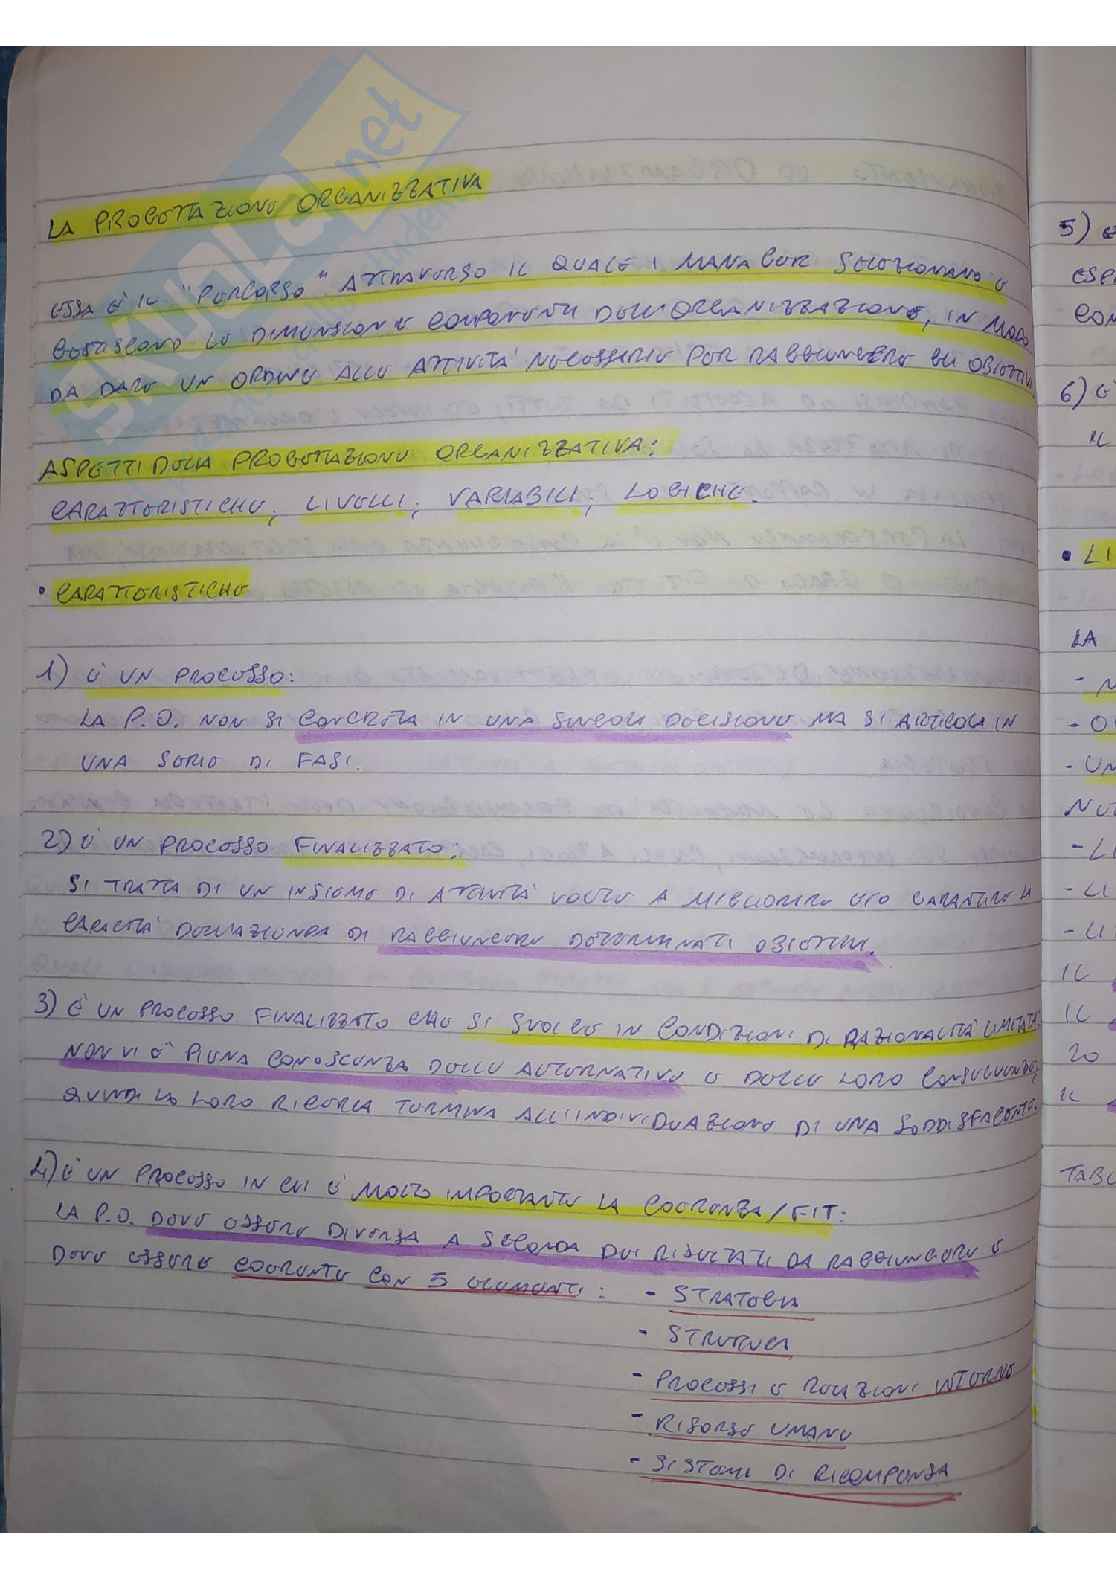 SKUOLA.net
LA PROGETTAZIONE ORGANIZZATIVA
ESSA È IL "PERCORSO" ATTRAVERSO IL QUALE I MANAGER SELEZIONANO E
GESTISCONO LE DIMENSIONI E COMPONENTI DELL'ORGANIZZAZIONE, IN MODO
DA DARE UN ORDINE ALLE ATTIVITÀ NECESSERIE PER RAGGIUNGERE GLI OBIETTIVI
ASPETTI DELLA PROGETTAZIONE ORGANIZZATIVA:
CARATTERISTICHE; LIVELLI; VARIABILI; LOGICHE.
• CARATTERISTICHE
1) È UN PROCESSO:
LA P.O. NON SI CONCRETA IN UNA SINGOLA DECISIONE MA SI ARTICOLA IN
UNA SERIE DI FASI.
2) È UN PROCESSO FINALIZZATO:
SI TRATTA DI UN INSIEME DI ATTIVITÀ VOLTE A MIGLIORARE E/O GARANTIRE LA
CAPACITÀ DELL'AZIENDA DI RAGGIUNGERE DETERMINATI OBIETTIVI.
3) È UN PROCESSO FINALIZZATO CHE SI SVOLGE IN CONDIZIONI DI RAZIONALITÀ LIMITATA:
NON VI È PIENA CONOSCENZA DELLE ALTERNATIVE E DELLE LORO CONSEGUENZE,
QUINDI LA LORO RICERCA TERMINA ALL'INDIVIDUAZIONE DI UNA SODDISFACENTE.
4) È UN PROCESSO IN CUI È MOLTO IMPORTANTE LA COERENZA/FIT:
LA P.O. DEVE ESSERE DIVERSA A SECONDA DEI RISULTATI DA RAGGIUNGERE E
DEVE ESSERE COERENTE CON 5 ELEMENTI:
- STRATEGIA
- STRUTTURA
- PROCESSI E RELAZIONI INTERNE
- RISORSE UMANE
- SISTEMI DI RICOMPENSA
5)
6)
IL
• LI
LA
-
-
- UN
- LI
- LI
- LI
IL
IL
20
IL
TABE